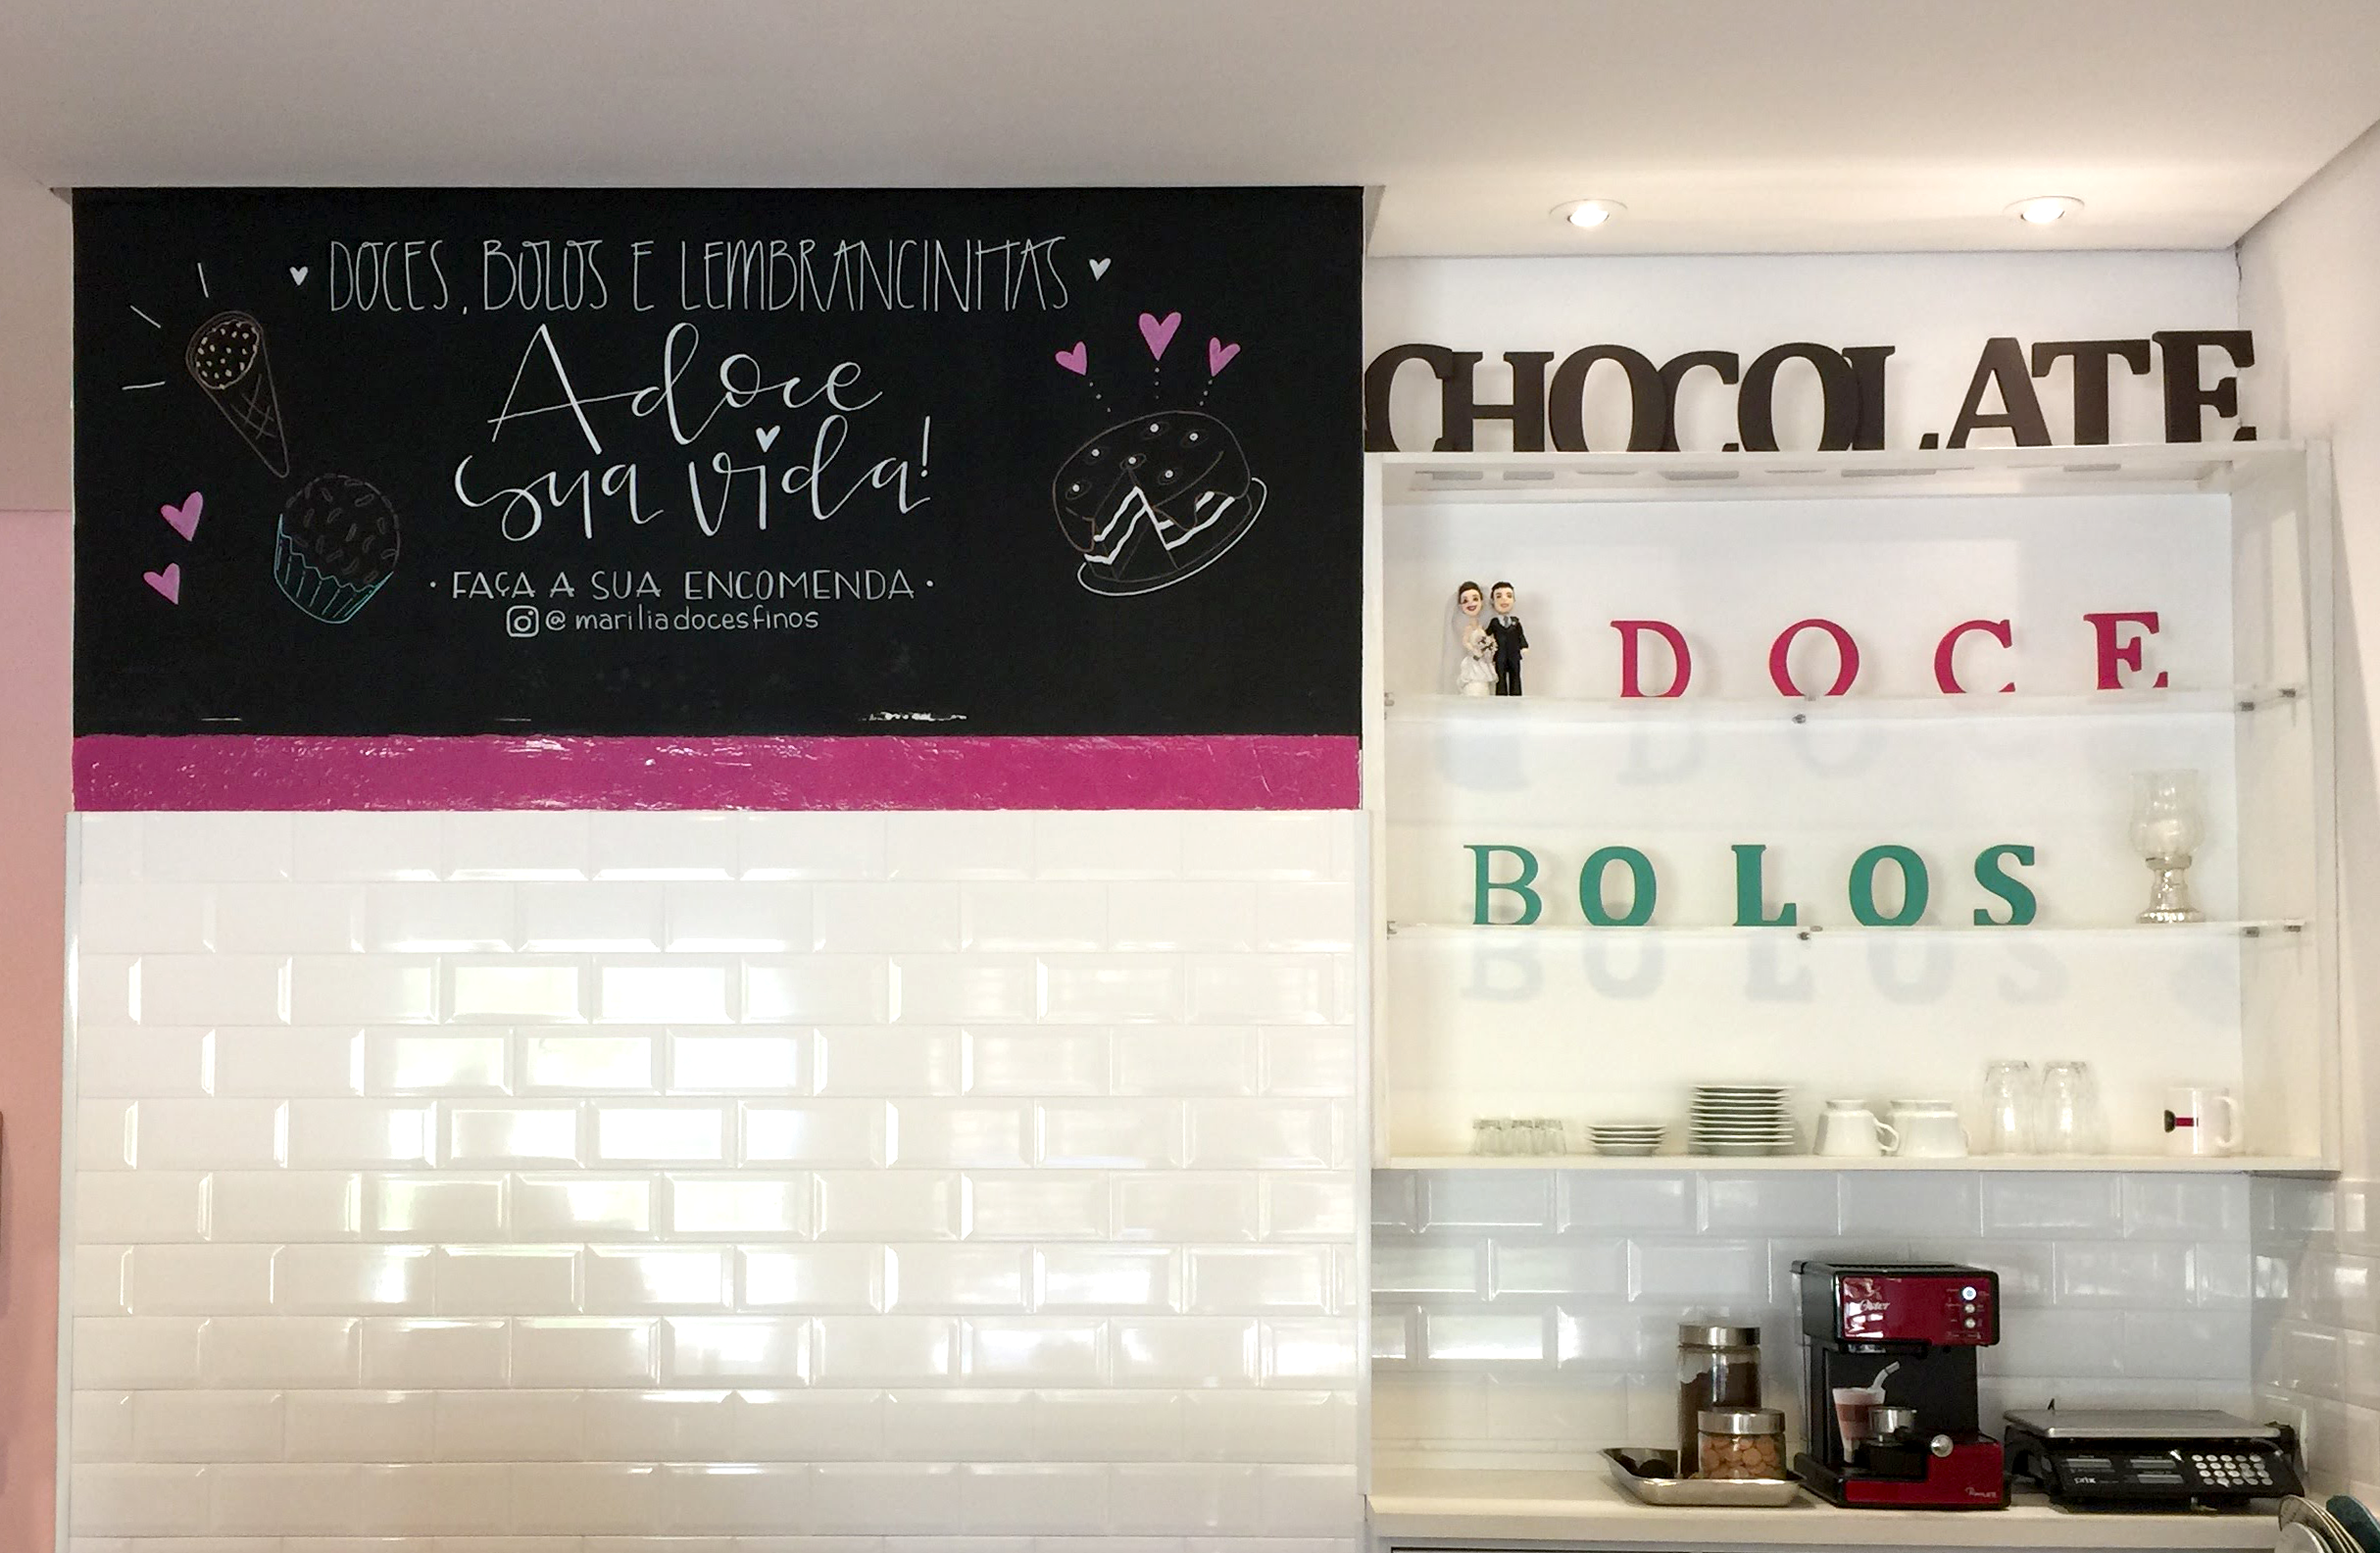 DOCES, BOLOS E LEMBRANCINHAS
Adoce
sua vida!
• FAÇA A SUA ENCOMENDA •
@mariliadocesfinos
CHOCOLATE
DOCE
BOLOS
Oster
prix